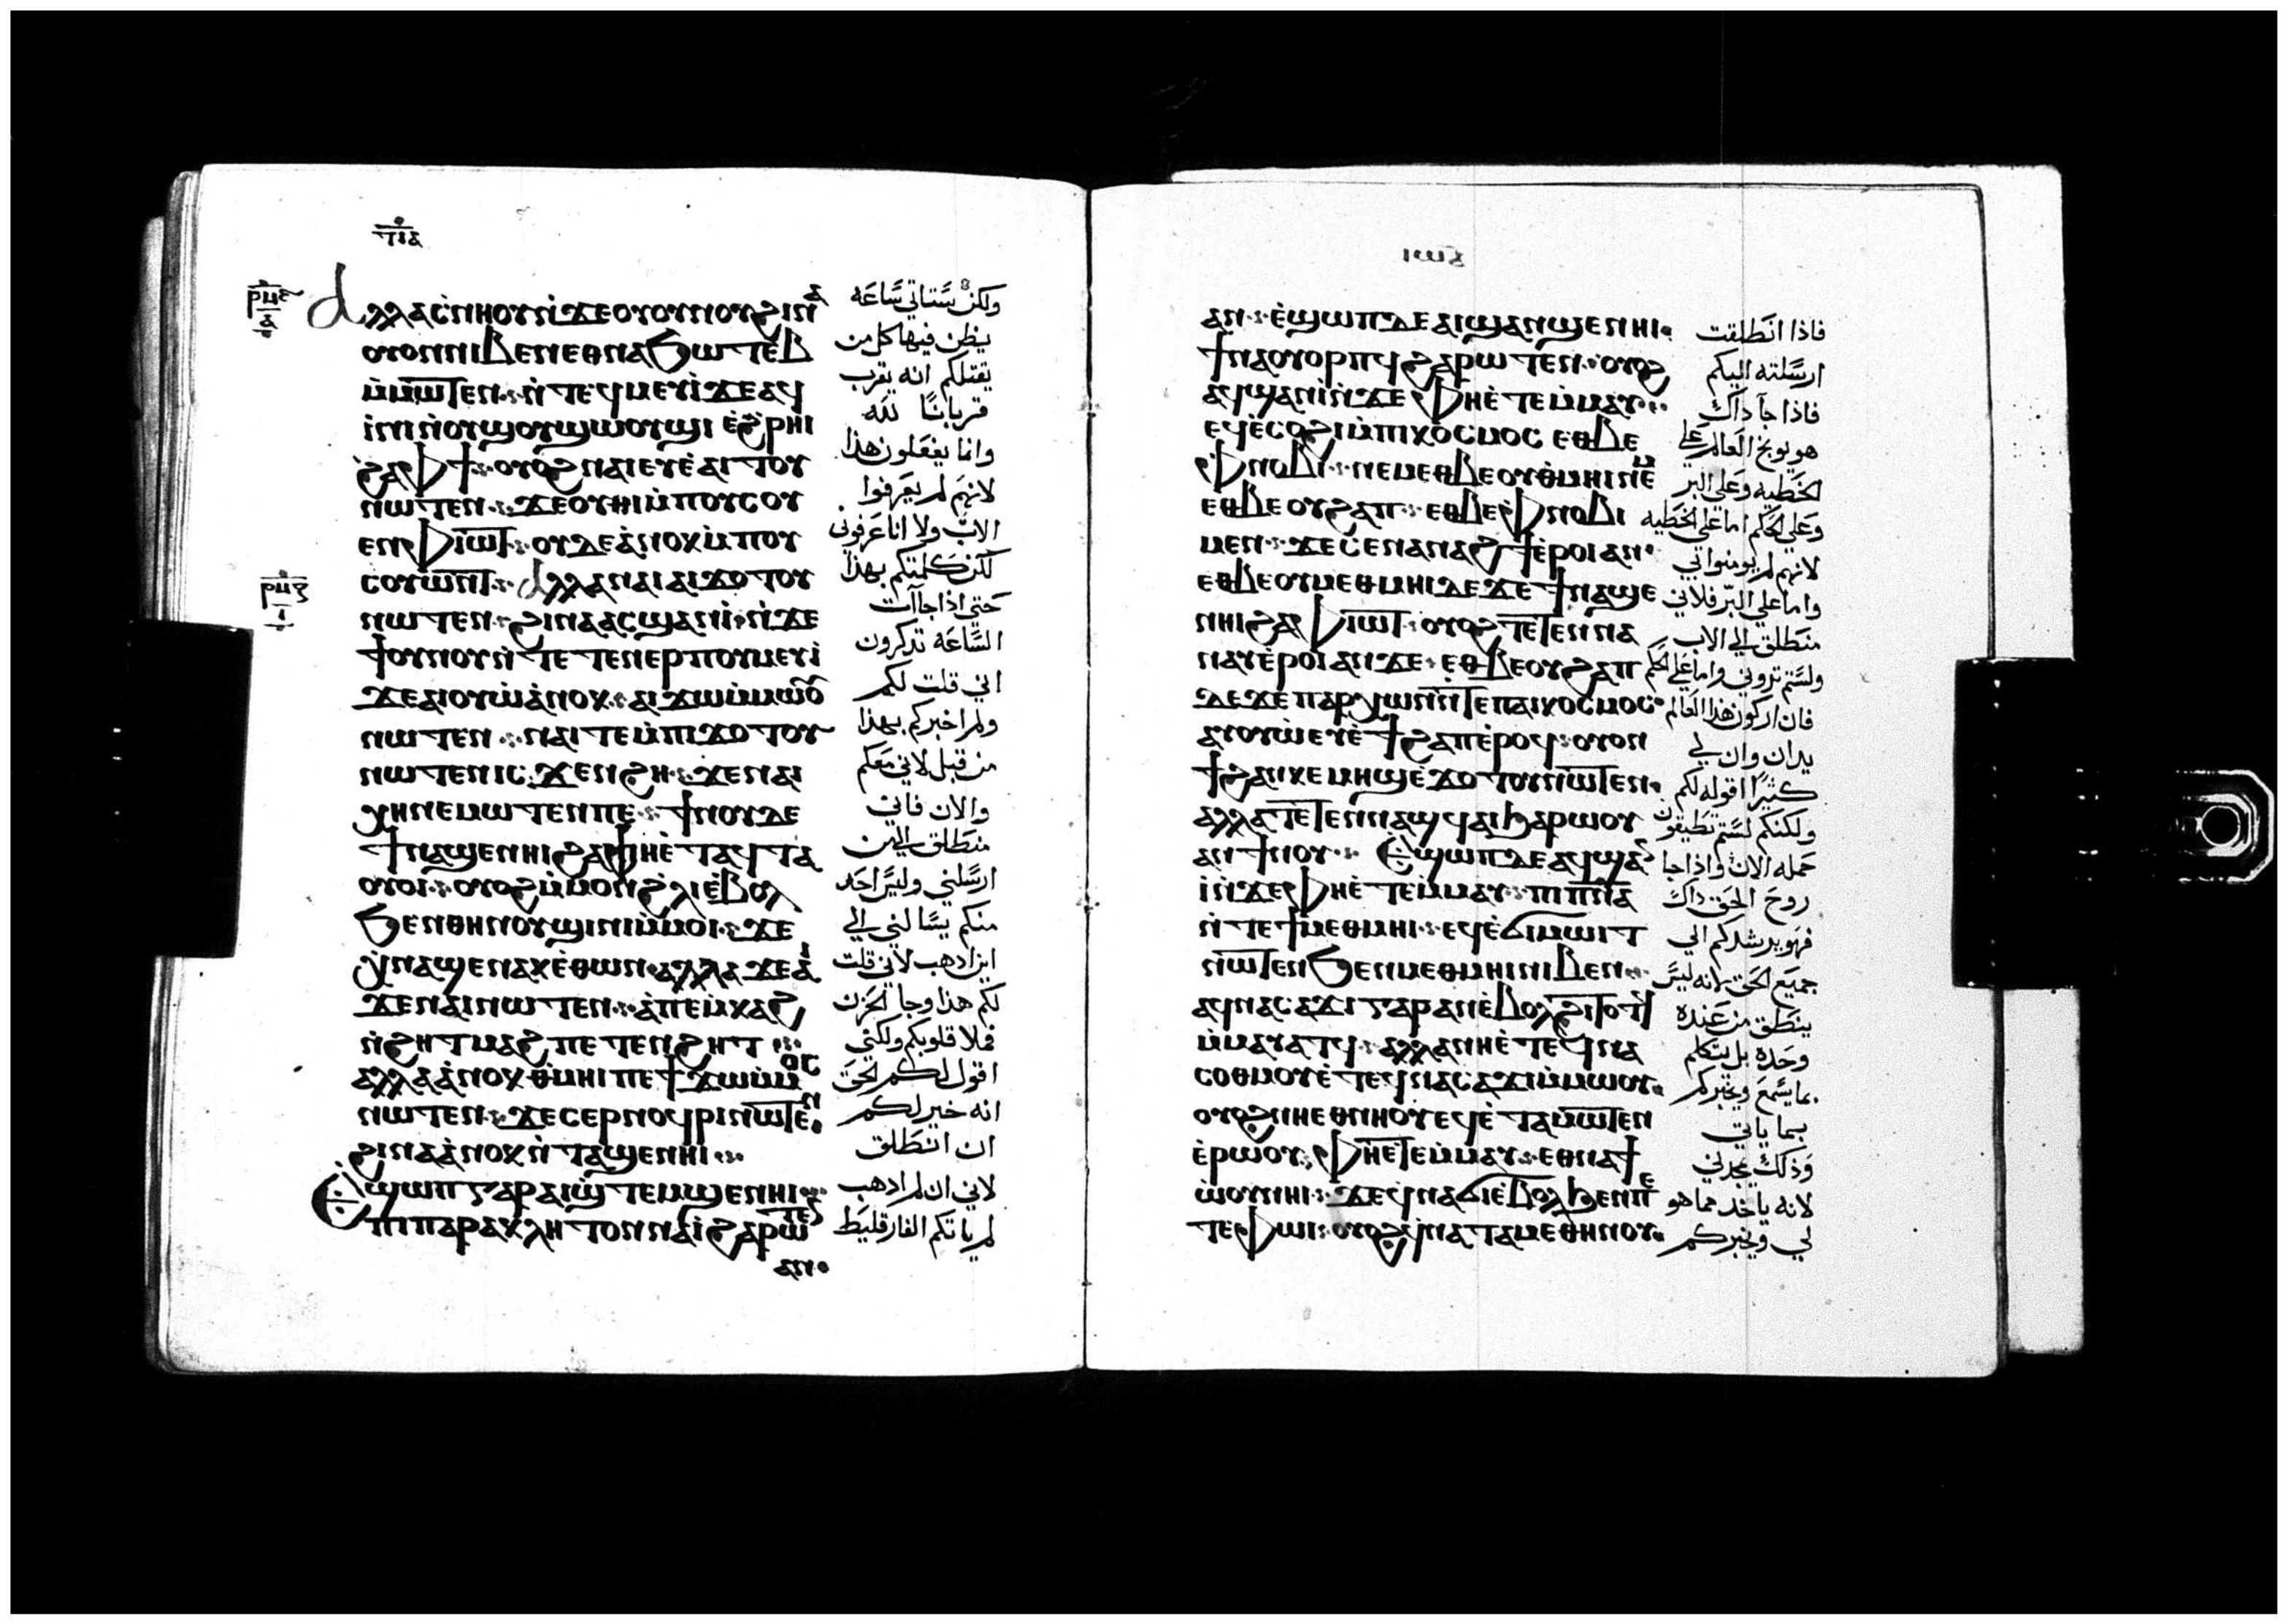 ⲧⲓⲇ
ⲣⲙⲋ
ⲇ
ⲁⲗⲗⲁ ⲥⲛⲏⲟⲩ ⲛϫⲉ ⲟⲩⲟⲩⲛⲟⲩ ϩⲓⲛⲁ
ⲟⲩⲟⲛ ⲛⲓⲃⲉⲛ ⲉⲑⲛⲁϧⲱⲧⲉⲃ
ⲙ̀ⲙⲱⲧⲉⲛ ⲛ̀ⲧⲉϥⲙⲉⲩⲓ̀ ϫⲉ ⲁϥ
ⲓ̀ⲛⲓ ⲛ̀ⲟⲩϣⲟⲩϣⲱⲟⲩϣⲓ ⲉ̀ϩⲣⲏⲓ
ϩⲁ ⲫϯ ⲟⲩⲟϩ ⲛⲁⲓ ⲉⲩⲉ̀ⲁⲓⲧⲟⲩ
ⲛⲱⲧⲉⲛ ϫⲉ ⲟⲩⲏⲓ ⲙ̀ⲡⲟⲩⲥⲟⲩ
ⲉⲛ ⲫⲓⲱⲧ ⲟⲩⲇⲉ ⲁ̀ⲛⲟⲕ ⲙ̀ⲡⲟⲩ
ⲥⲟⲩⲱⲛⲧ ⲁⲗⲗⲁ ⲛⲁⲓ ⲁⲓϫⲟⲧⲟⲩ
ⲣⲙⲍ
ⲓ
ⲛⲱⲧⲉⲛ ϩⲓⲛⲁ ⲁⲥϣⲁⲛⲓ̀ ⲛ̀ϫⲉ
ϯⲟⲩⲛⲟⲩ ⲛ̀ⲧⲉⲧⲉⲛⲉⲣⲡⲟⲩⲙⲉⲩⲓ̀
ϫⲉ ⲁⲓⲟⲩⲱ̀ ⲁ̀ⲛⲟⲕ ⲁⲓϫⲱ ⲙ̀ⲙⲱⲟⲩ
ⲛⲱⲧⲉⲛ ⲛⲁⲓ ⲧⲉ ⲙ̀ⲡⲓϫⲟⲧⲟⲩ
ⲛⲱⲧⲉⲛ ⲓⲥϫⲉⲛ ϩⲏ ϫⲉ ⲛⲁⲓ
ⲭⲏ ⲛⲉⲙⲱⲧⲉⲛ ⲡⲉ ϯⲛⲟⲩ ⲇⲉ
ϯⲛⲁϣⲉⲛⲏⲓ ϩⲁ ⲫⲏ ⲉ̀ⲧⲁϥⲧⲁ
ⲟⲩⲟⲓ ⲟⲩⲟϩ ⲙ̀ⲙⲟⲛ ϩⲗⲓ ⲉ̀ⲃⲟⲗ
ϧⲉⲛ ⲑⲏⲛⲟⲩ ϣⲓⲛⲓ ⲙ̀ⲙⲟⲓ ϫⲉ
ⲭⲛⲁϣⲉⲛⲁⲕ ⲉ̀ⲑⲱⲛ ⲁⲗⲗⲁ ϫⲉ ⲁⲓ
ϫⲉ ⲛⲁⲓ ⲛⲱⲧⲉⲛ ⲁ̀ ⲡⲉⲙⲕⲁϩ
ⲛ̀ϩⲏⲧ ⲙⲁϩ ⲡⲉⲧⲉⲛϩⲏⲧ
ⲁⲗⲗⲁ ⲁ̀ⲛⲟⲕ ⲑⲙⲏⲓ ⲡⲉϯϫⲱ ⲙ̀ⲙⲟⲥ
ⲛⲱⲧⲉⲛ ϫⲉ ⲥⲉⲣⲛⲟϥⲣⲓ ⲛⲱⲧⲉⲛ
ϩⲓⲛⲁ ⲁ̀ⲛⲟⲕ ⲛ̀ⲧⲁϣⲉⲛⲏⲓ
ⲉϣⲱⲡ ⲅⲁⲣ ⲁⲓϣⲧⲉⲙϣⲉⲛⲏⲓ
ⲡⲓⲡⲁⲣⲁⲕⲗⲏⲧⲟⲛ ⲛⲁⲓ̀ ϩⲁⲣⲱⲧⲉⲛ
ⲁⲛ
ولكن ستاتي ساعه
يظن فيها كل من
يقتلكم انه يقرب
قربانا لله
وانما يفعلون هذا
لانهم لم يعرفوا
الاب ولا انا عرفوني
لكن كلمتكم بهذا
حتى اذا جاآت
الساعه تدكرون
اني قلت لكم
ولم اخبركم بهذا
من قبل لاني معكم
والان فاني
منطلق الى من
ارسلني وليس احد
منكم يسالني الي
اين ادهب لاني قلت
لكم هذا وجا الحزن
فملا قلوبكم ولكني
اقول لكم الحق
انه خير لكم
ان انطلق
لاني ان لم ادهب
لم ياتكم الفارقليط
ⲁⲛ ⲉ̀ϣⲱⲡ ⲇⲉ ⲁⲓϣⲁⲛϣⲉⲛⲏⲓ
ϯⲛⲁⲟⲩⲟⲣⲡϥ ϩⲁⲣⲱⲧⲉⲛ ⲟⲩⲟϩ
ⲁϥϣⲁⲛⲓ̀ ⲛ̀ϫⲉ ⲫⲏ ⲉ̀ⲧⲉⲙ̀ⲙⲁⲩ
ⲉϥⲉ̀ⲥⲟϩⲓ ⲙ̀ⲡⲓⲕⲟⲥⲙⲟⲥ ⲉⲑⲃⲉ
ⲫⲛⲟⲃⲓ ⲛⲉⲙ ⲉⲑⲃⲉ ⲟⲩⲑⲙⲏⲓ ⲛⲉⲙ
ⲉⲑⲃⲉ ⲟⲩϩⲁⲡ ⲉⲑⲃⲉ ⲫⲛⲟⲃⲓ
ⲙⲉⲛ ϫⲉ ⲥⲉⲛⲁⲛⲁϩϯ ⲉ̀ⲣⲟⲓ ⲁⲛ
ⲉⲑⲃⲉ ⲟⲩⲙⲉⲑⲙⲏⲓ ⲇⲉ ϫⲉ ϯⲛⲁϣⲉ
ⲛⲏⲓ ϩⲁ ⲫⲓⲱⲧ ⲟⲩⲟϩ ⲧⲉⲧⲉⲛⲛⲁ
ⲛⲁⲩ ⲉ̀ⲣⲟⲓ ⲁⲛ ϫⲉ ⲉⲑⲃⲉ ⲟⲩϩⲁⲡ
ⲇⲉ ϫⲉ ⲡⲁⲣⲭⲱⲛ ⲛ̀ⲧⲉ ⲡⲁⲓⲕⲟⲥⲙⲟⲥ
ⲁⲩⲟⲩⲱ̀ ⲉⲩⲉ̀ϯϩⲁⲡ ⲉ̀ⲣⲟϥ ⲟⲩⲟⲛ
ϯϩⲁⲛⲕⲉⲙⲏϣ ⲉ̀ϫⲟⲧⲟⲩ ⲛⲱⲧⲉⲛ
ⲁⲗⲗⲁ ⲧⲉⲧⲉⲛⲛⲁϣϥⲁⲓ ϧⲁⲣⲱⲟⲩ
ⲁⲛ ϯⲛⲟⲩ ⲉϣⲱⲡ ⲇⲉ ⲁϥϣⲁⲛ
ⲓ̀ ⲛ̀ϫⲉ ⲫⲏ ⲉ̀ⲧⲉⲙ̀ⲙⲁⲩ ⲡⲓⲡⲛⲁ
ⲛ̀ⲧⲉ ϯⲙⲉⲑⲙⲏⲓ ⲉϥⲉ̀ϭⲓⲙⲱⲓⲧ
ⲛⲱⲧⲉⲛ ϧⲉⲛ ⲙⲉⲑⲙⲏⲓ ⲛⲓⲃⲉⲛ
ⲁϥⲛⲁⲥⲁϫⲓ ⲅⲁⲣ ⲁⲛ ⲉ̀ⲃⲟⲗ ϩⲓⲧⲟⲧϥ
ⲙ̀ⲙⲁⲩⲁⲧϥ ⲁⲗⲗⲁ ⲛⲏ ⲉ̀ⲧⲉϥⲛⲁ
ⲥⲟⲑⲙⲟⲩ ⲉ̀ⲧⲉϥⲛⲁⲥⲁϫⲓ ⲙ̀ⲙⲱⲟⲩ
ⲟⲩⲟϩ ⲛⲏ ⲉⲑⲛⲏⲟⲩ ⲉϥⲉ̀ⲧⲁⲙⲱⲧⲉⲛ
ⲉ̀ⲣⲱⲟⲩ ⲫⲏ ⲉⲧⲉⲙ̀ⲙⲁⲩ ⲉⲑⲛⲁϯ
ⲱ̀ⲟⲩ ⲛⲏⲓ ϫⲉ ϥⲛⲁϭⲓ ⲉ̀ⲃⲟⲗ ϧⲉⲛ ⲡⲉ
ⲧⲉ ⲫⲱⲓ ⲟⲩⲟϩ ϥⲛⲁⲧⲁⲙⲉ ⲑⲏⲛⲟⲩ
فاذا انطلقت
ارسلته اليكم
فاذا جآ داك
هو يوبخ العالم على
الخطيه وعلي البر
وعلي الحكم اما على الخطيه
لانهم لم يومنوا بي
واما على البر فلاني
منطلق الي الاب
ولستم تروني واما علي الحكم
فان اركون هذا العالم
يدان وان لي
كثيرا اقوله لكم
ولكنكم لستم تطيقون
حمله الان واذا جا
روح الحق داك
فهو يرشدكم الي
جميع الحق لانه ليس
ينطق من عنده
وحده بل يتكلم
بما يسمع ويخبركم
بما ياتي
وذلك يمجدني
لانه ياخد مما هو
لي ويخبركم